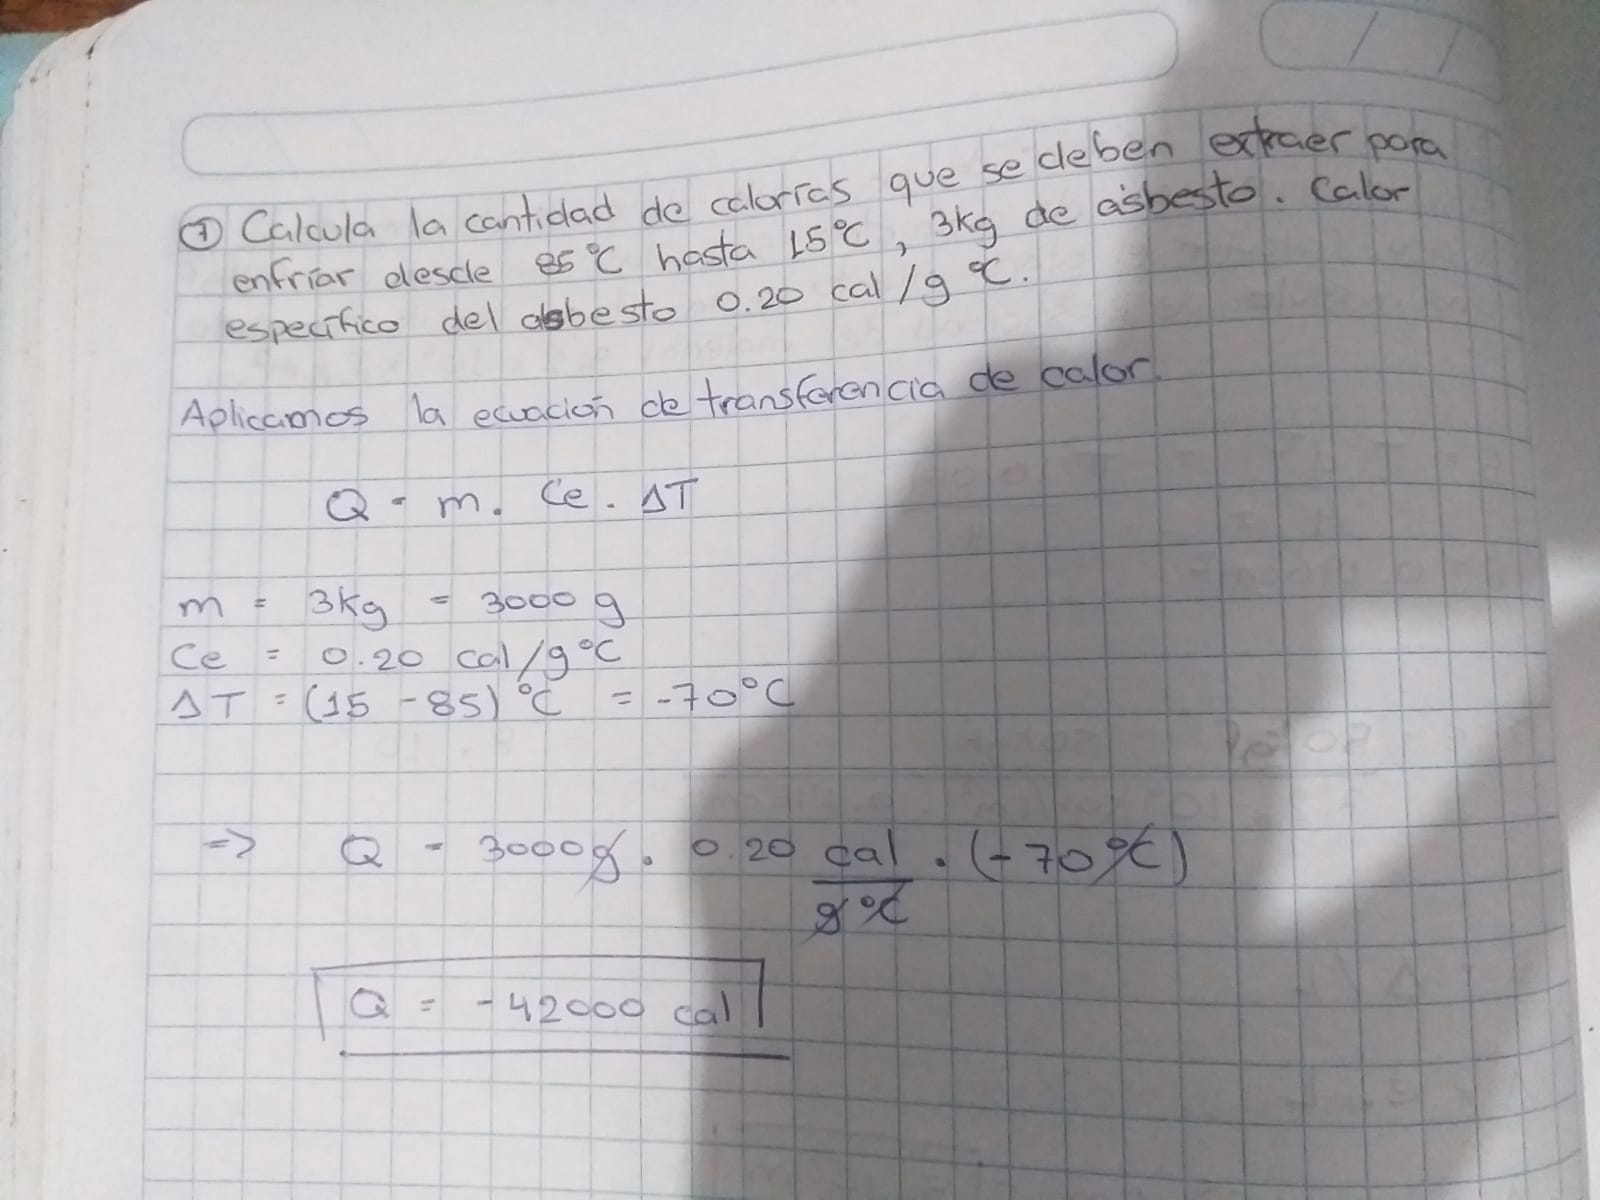 ① Calcula la cantidad de calorías que se deben extraer para
enfriar desde 85°C hasta 15°C, 3kg de asbesto. Calor
específico del asbesto 0.20 cal/g °C.
Aplicamos la ecuación de transferencia de calor.
Q = m. Ce. ΔT
m = 3Kg = 3000 g
Ce = 0.20 cal/g°C
ΔT = (15 - 85) °C = -70°C
=> Q = 3000g. 0.20 cal/g°C . (-70°C)
Q = -42000 cal